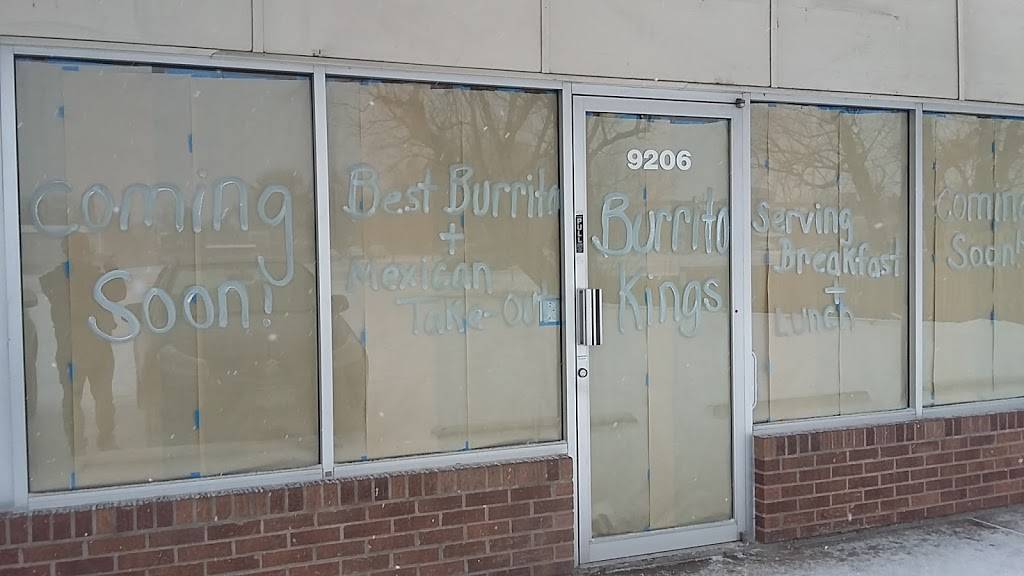 Coming
Soon!
Best Burrito
+
Mexican
Take-Out
9206
PULL
Burrito
Kings
Serving
Breakfast
+
Lunch
Coming
Soon!